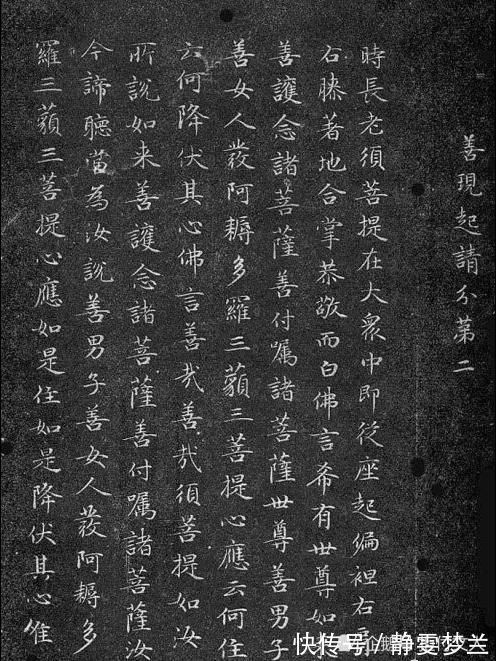 善現起請分第二
時長老須菩提在大衆中即從座起偏袒右肩
右膝著地合掌恭敬而白佛言希有世尊如
善護念諸菩薩善付嘱諸菩薩世尊善男子
善女人發阿耨多羅三藐三菩提心應云何住
云何降伏其心佛言善哉善哉須菩提如汝
所說如来善護念諸菩薩善付嘱諸菩薩汝
今諦聽當為汝說善男子善女人發阿耨多
羅三藐三菩提心應如是住如是降伏其心唯
快传号/静雯梦兰